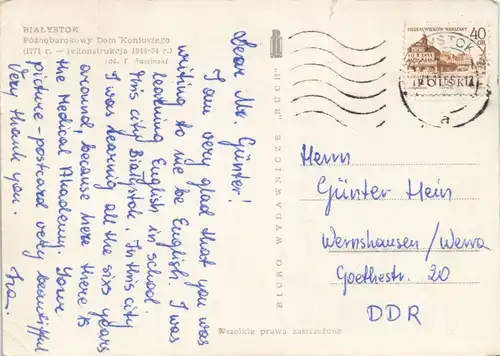 BIAŁYSTOK
Późnobarokowy Dom Koniuszego
(1771 r. — rekonstrukcja 1948-54 r.)
Dear Mr. Günter!
I am very glad that you was
writing to me be English. I was
learning English in school.
This city Białystok. In this city
I was learning all the sixs years
around, because here there is
the Medical Akademy. Your
picture-postcard very beautiffull
Very thank you.
BIURO WYDAWNICZE „RUCH"
SIEDEM WIEKÓW WARSZAWY
40
GR
POLSKA
a
Herrn
Günter Hein
Wernshausen/Werra
Goethestr. 20
DDR
Wszelkie prawa zastrzeżone